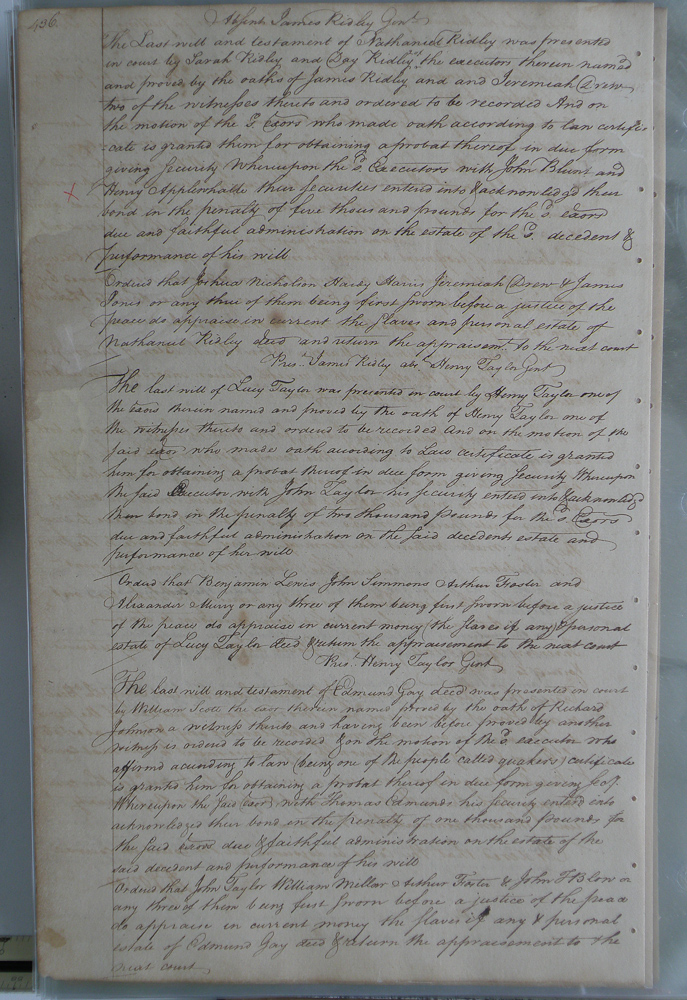 496.
Absent James Ridley Gent.
The Last will and testament of Nathaniel Ridley was presented
in court by Sarah Ridley and Day Ridley the executors therein named
and proved by the oaths of James Ridley and and Jeremiah Drew
two of the witnesses thereto and ordered to be recorded And on
the motion of the sd. Exors who made oath according to law certifi-
cate is granted them for obtaining a probat thereof in due form
giving security Whereupon the sd. Executors with John Blunt and
Henry Applewhaite their securities entered into & acknowledged their
bond in the penalty of five thousand pounds for the sd. exors
due and faithful administration on the estate of the sd. decedent &
performance of his will
Ordered that Joshua Nicholson Hardy Harris Jeremiah Drew & James
Jones or any three of them being first sworn before a justice of the
peace do appraise in current the slaves and personal estate of
Nathaniel Ridley decd and return the appraisemt. to the next court
Prest. James Ridley abst. Henry Taylor Gent
The last will of Lucy Taylor was presented in court by Henry Taylor one of
the Exors therein named and proved by the oath of Henry Taylor one of
the witnesses thereto and ordered to be recorded And on the motion of the
said exor who made oath according to Law certificate is granted
him for obtaining a probat thereof in due form giving security Whereupon
the said Executor with John Taylor his security entered into & acknowledgd
their bond in the penalty of two thousand Pounds for the sd. Exors
due and faithful administration on the said decedents estate and
performance of her will
Ordered that Benjamin Lewis John Simmons Arthur Foster and
Alexander Murry or any three of them being first sworn before a justice
of the peace do appraise in current money (the slaves if any) & personal
estate of Lucy Taylor decd & return the appraisement to the next court
Prest. Henry Taylor Gent
The last will and testament of Edmund Gay decd was presented in court
by William Scott the exor therein named proved by the oath of Richard
Johnson a witness thereto and having been before proved by another
witness is ordered to be recorded & on the motion of the sd. executor who
affirmd according to law (being one of the people called quakers) certificate
is granted him for obtaining a probat thereof in due form giving
Whereupon the said exor with Thomas Edmunds his security entered into
acknowledged their bond in the penalty of one thousand pounds for
the said exors due & faithful administration on the estate of the
said decedent and performance of his will
Ordered that John Taylor William Millar Arthur Foster & John T Blow or
any three of them being first sworn before a justice of the peace
do appraise in current money the slaves if any & personal
estate of Edmund Gay decd & return the appraisement to the
next court